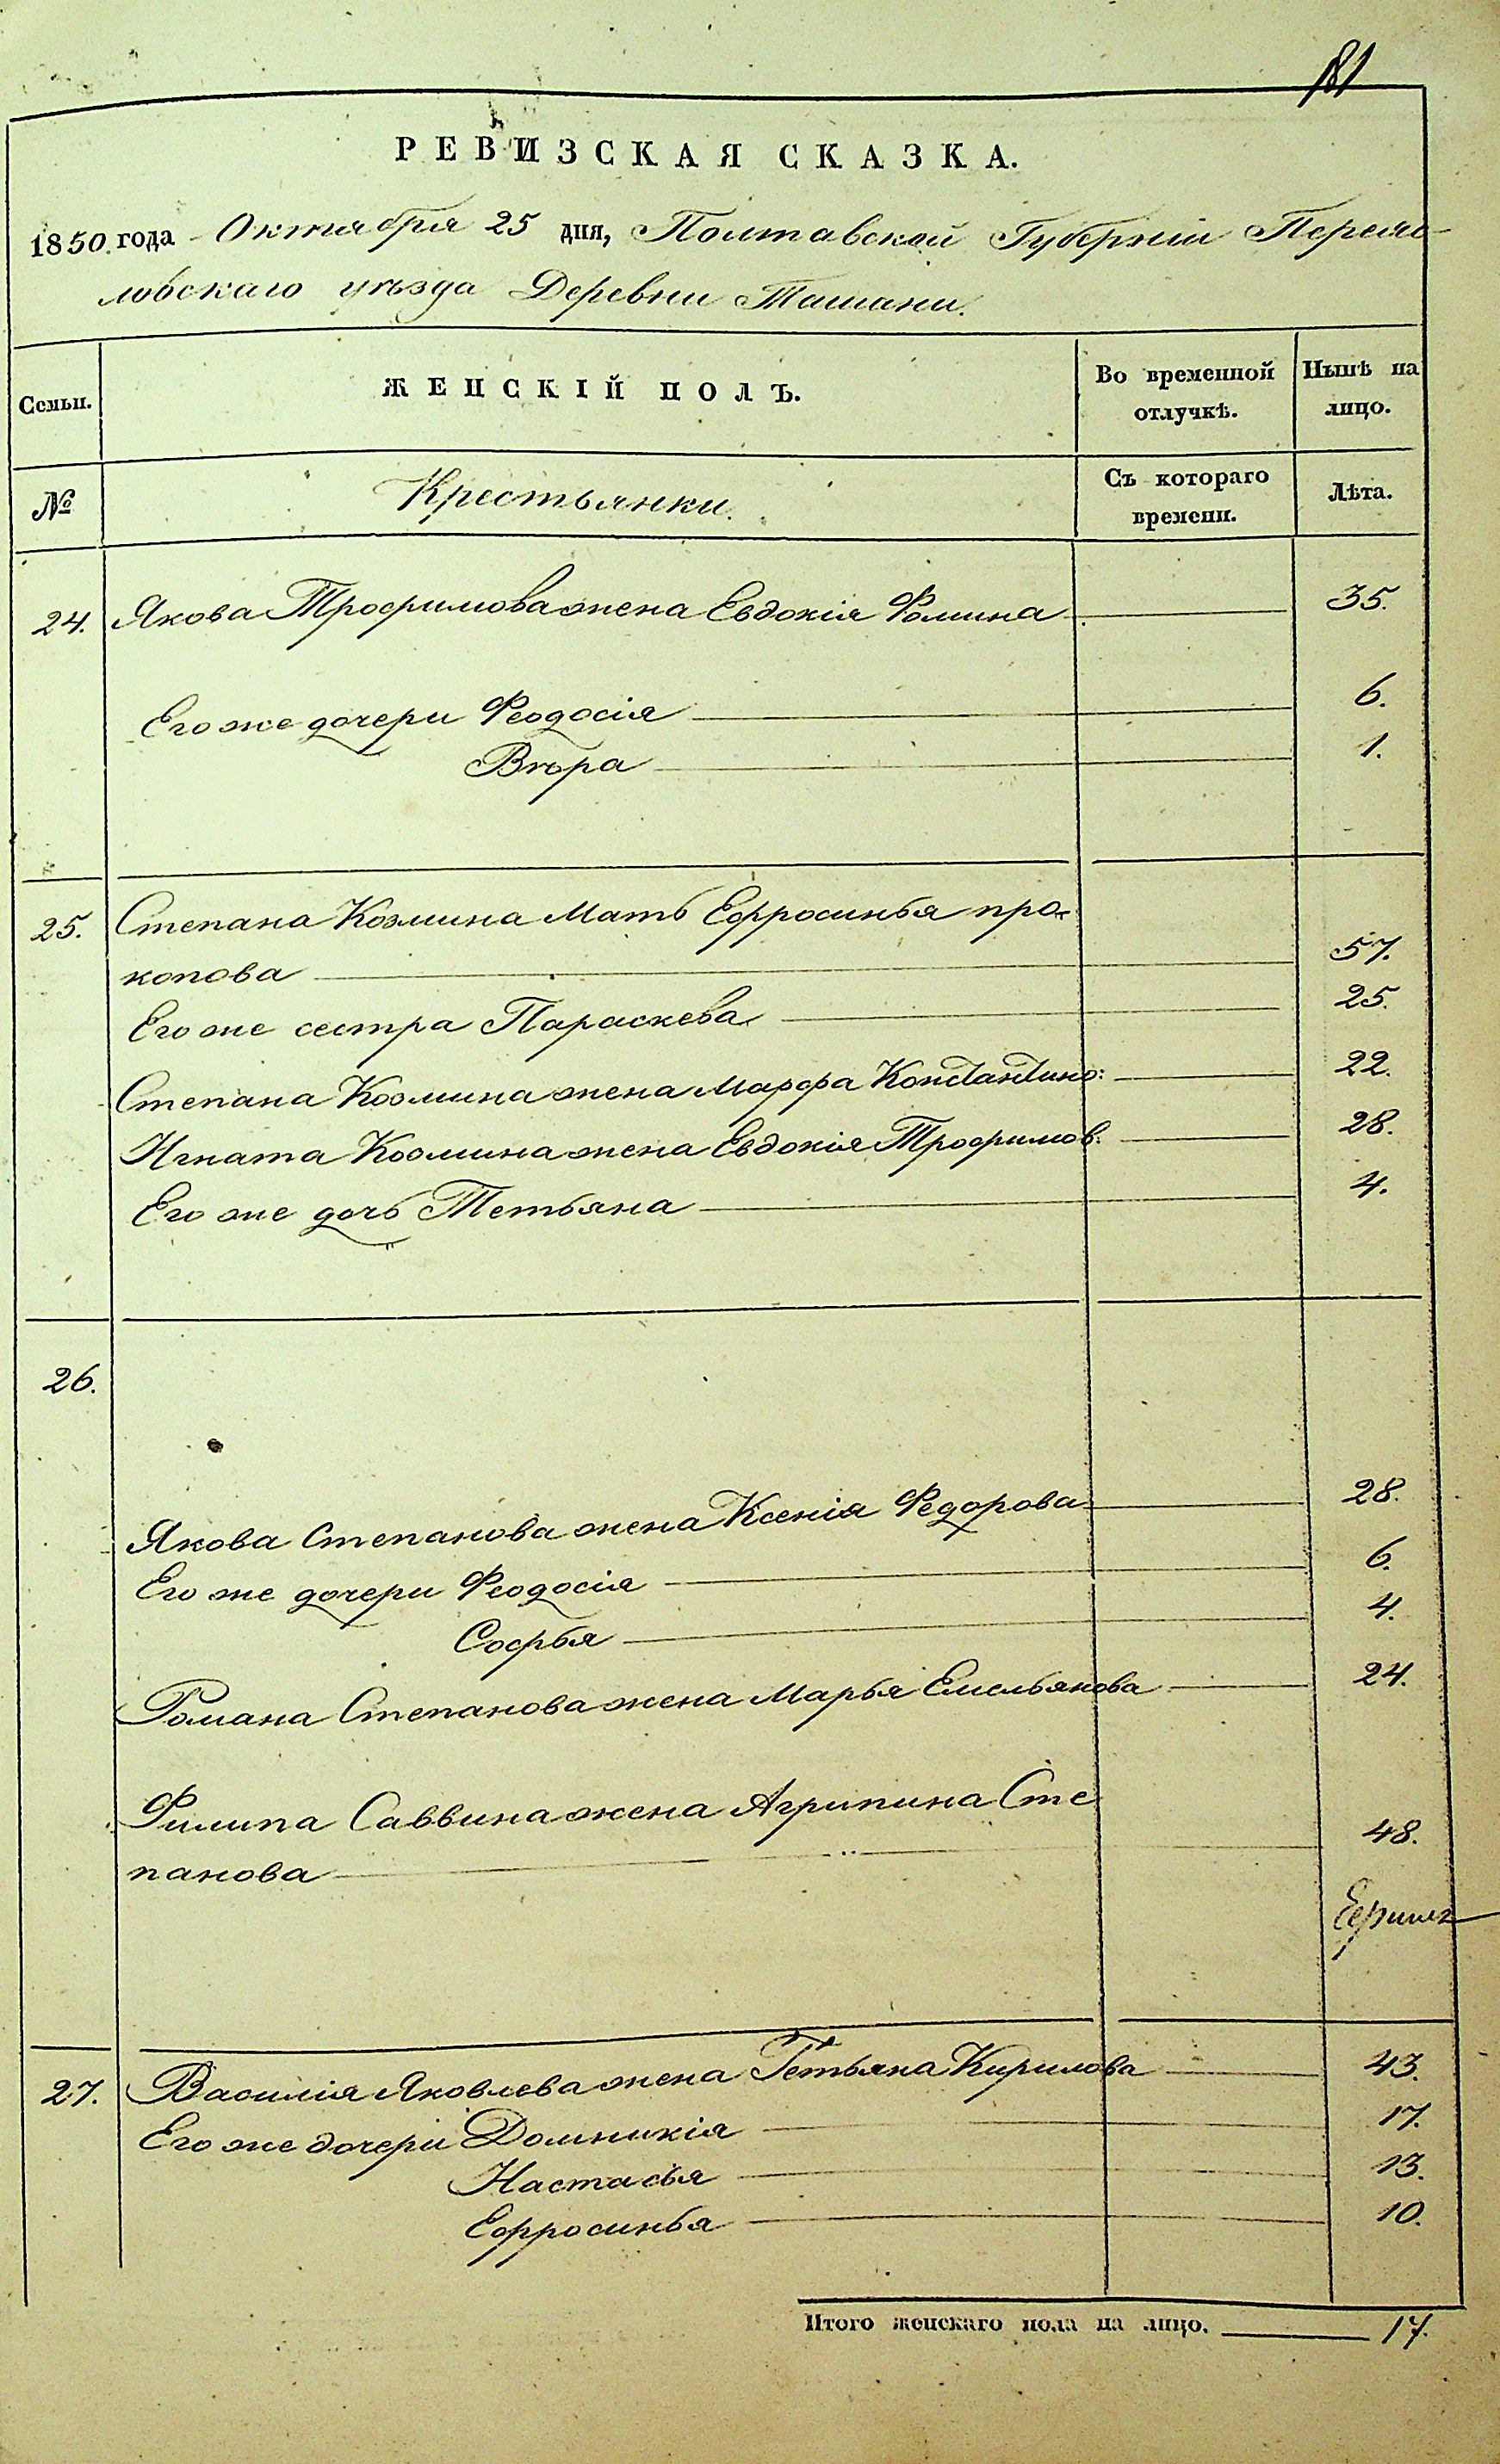 181
РЕВИЗСКАЯ СКАЗКА.
1850 года Октября 25 дня, Полтавской Губерніи Переяс-
ловскаго уѣзда Деревни Ташани.
Семьи. ЖЕНСКІЙ ПОЛЪ. Во временной отлучкѣ. Нынѣ на лицо.
№ Крестьянки. Съ котораго времени. Лѣта.
24. Якова Трофимова жена Евдокія Фомина 35.
Его же дочери Феодосія 6.
Вѣра 1.
25. Степана Козмина Мать Ефросинья про-
копова 57.
Его же сестра Параскева 25.
Степана Козмина жена Марфа Константино: 22.
Игната Козмина жена Евдокія Трофимов: 28.
Его же дочь Тетьяна 4.
26.
Якова Степанова жена Ксенія Федорова 28.
Его же дочери Феодосія 6.
Софья 4.
Романа Степанова жена Марья Емельянова 24.
Филипа Саввина жена Агрипина Сте
панова 48.
27. Василія Яковлева жена Тетьяна Кирилова 43.
Его же дочери Домникія 17.
Настасья 13.
Ефросинья 10.
Итого женскаго пола на лицо. 17.